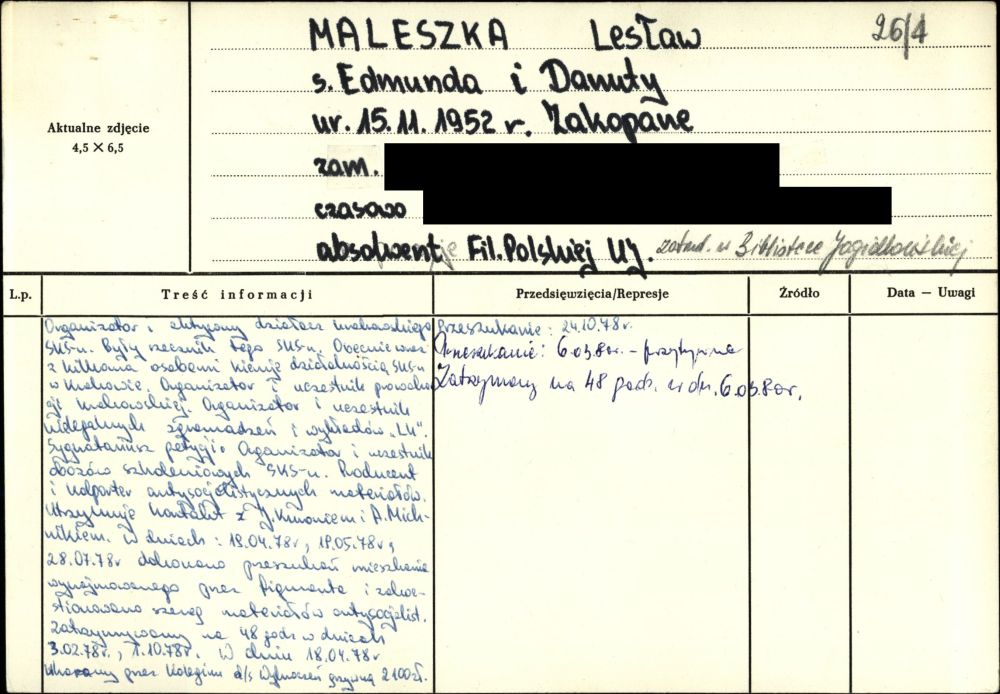 MALESZKA Lesław
26/4
s. Edmunda i Danuty
ur. 15.11.1952 r. Zakopane
Aktualne zdjęcie
4,5 X 6,5
zam.
czasowo
absolwent Fil. Polskiej UJ. zatrud. w Bibliotece Jagiellońskiej
L.p.
Treść informacji
Przedsięwzięcia/Represje
Źródło
Data — Uwagi
Organizator i aktywny działacz krakowskiego
SKS-u. Były rzecznik tego SKS-u. Obecnie wraz
z kilkoma osobami kieruje działalnością SKS-u
w Krakowie. Organizator i uczestnik prowoka-
cji krakowskiej. Organizator i uczestnik
nielegalnych zgromadzeń i wykładów „LU".
Sygnatariusz petycji. Organizator i uczestnik
obozów szkoleniowych SKS-u. Producent
i kolporter antysocjalistycznych materiałów.
Utrzymuje kontakt z J. Kuroniem i A. Mich-
nikiem. W dniach: 19.04.78r, 19.05.78r,
28.07.78r dokonano przeszukań mieszkania
wynajmowanego przez figuranta i zakwe-
stionowano szereg materiałów antysocjalist.
Zatrzymywany na 48 godz w dniach
3.02.78r., 1.10.78r. W dniu 18.04.78r
Ukarany przez Kolegium d/s Wykroczeń grzywną 2100 zł.
Przeszukanie: 24.10.78r.
Przeszukanie: 6.03.80r. –
Zatrzymany na 48 godz. w dn. 6.03.80r.